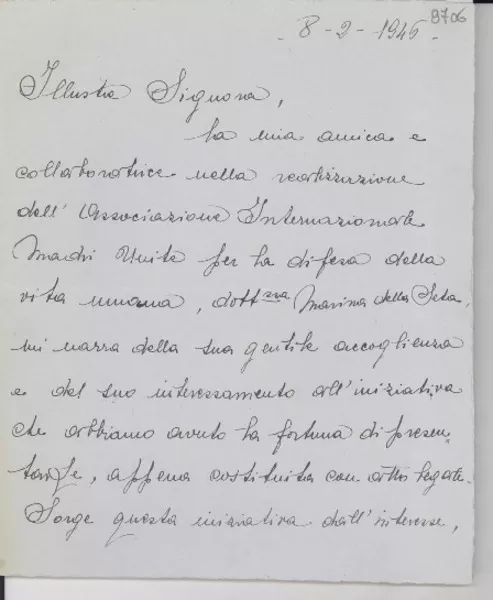 8706
8-2-1945-
Illustre Signora,
la mia amica e
collaboratrice nella realizzazione
dell'Associazione Internazionale
Madri Unite per la difesa della
vita umana, dott.ssa Marina della Seta,
mi narra della sua gentile accoglienza
e del suo interessamento all'iniziativa
che abbiamo avuto la fortuna di presen
tarle, appena costituita con atto legale.
Sorge questa iniziativa dall'interesse,